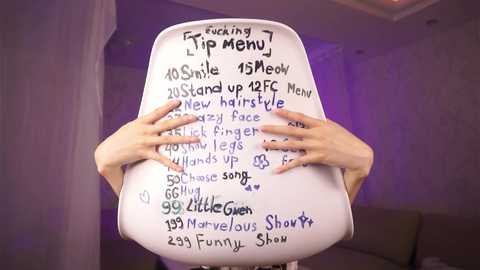 Fucking
Tip Menu
10 Smile 15 Meow
20 Stand up 12 FC Menu
New hairstyle
crazy face
Lick finger
Show legs
Hands up
50 Choose song
66 Hug
99 Little Guen
199 Marvelous Show
299 Funny Show